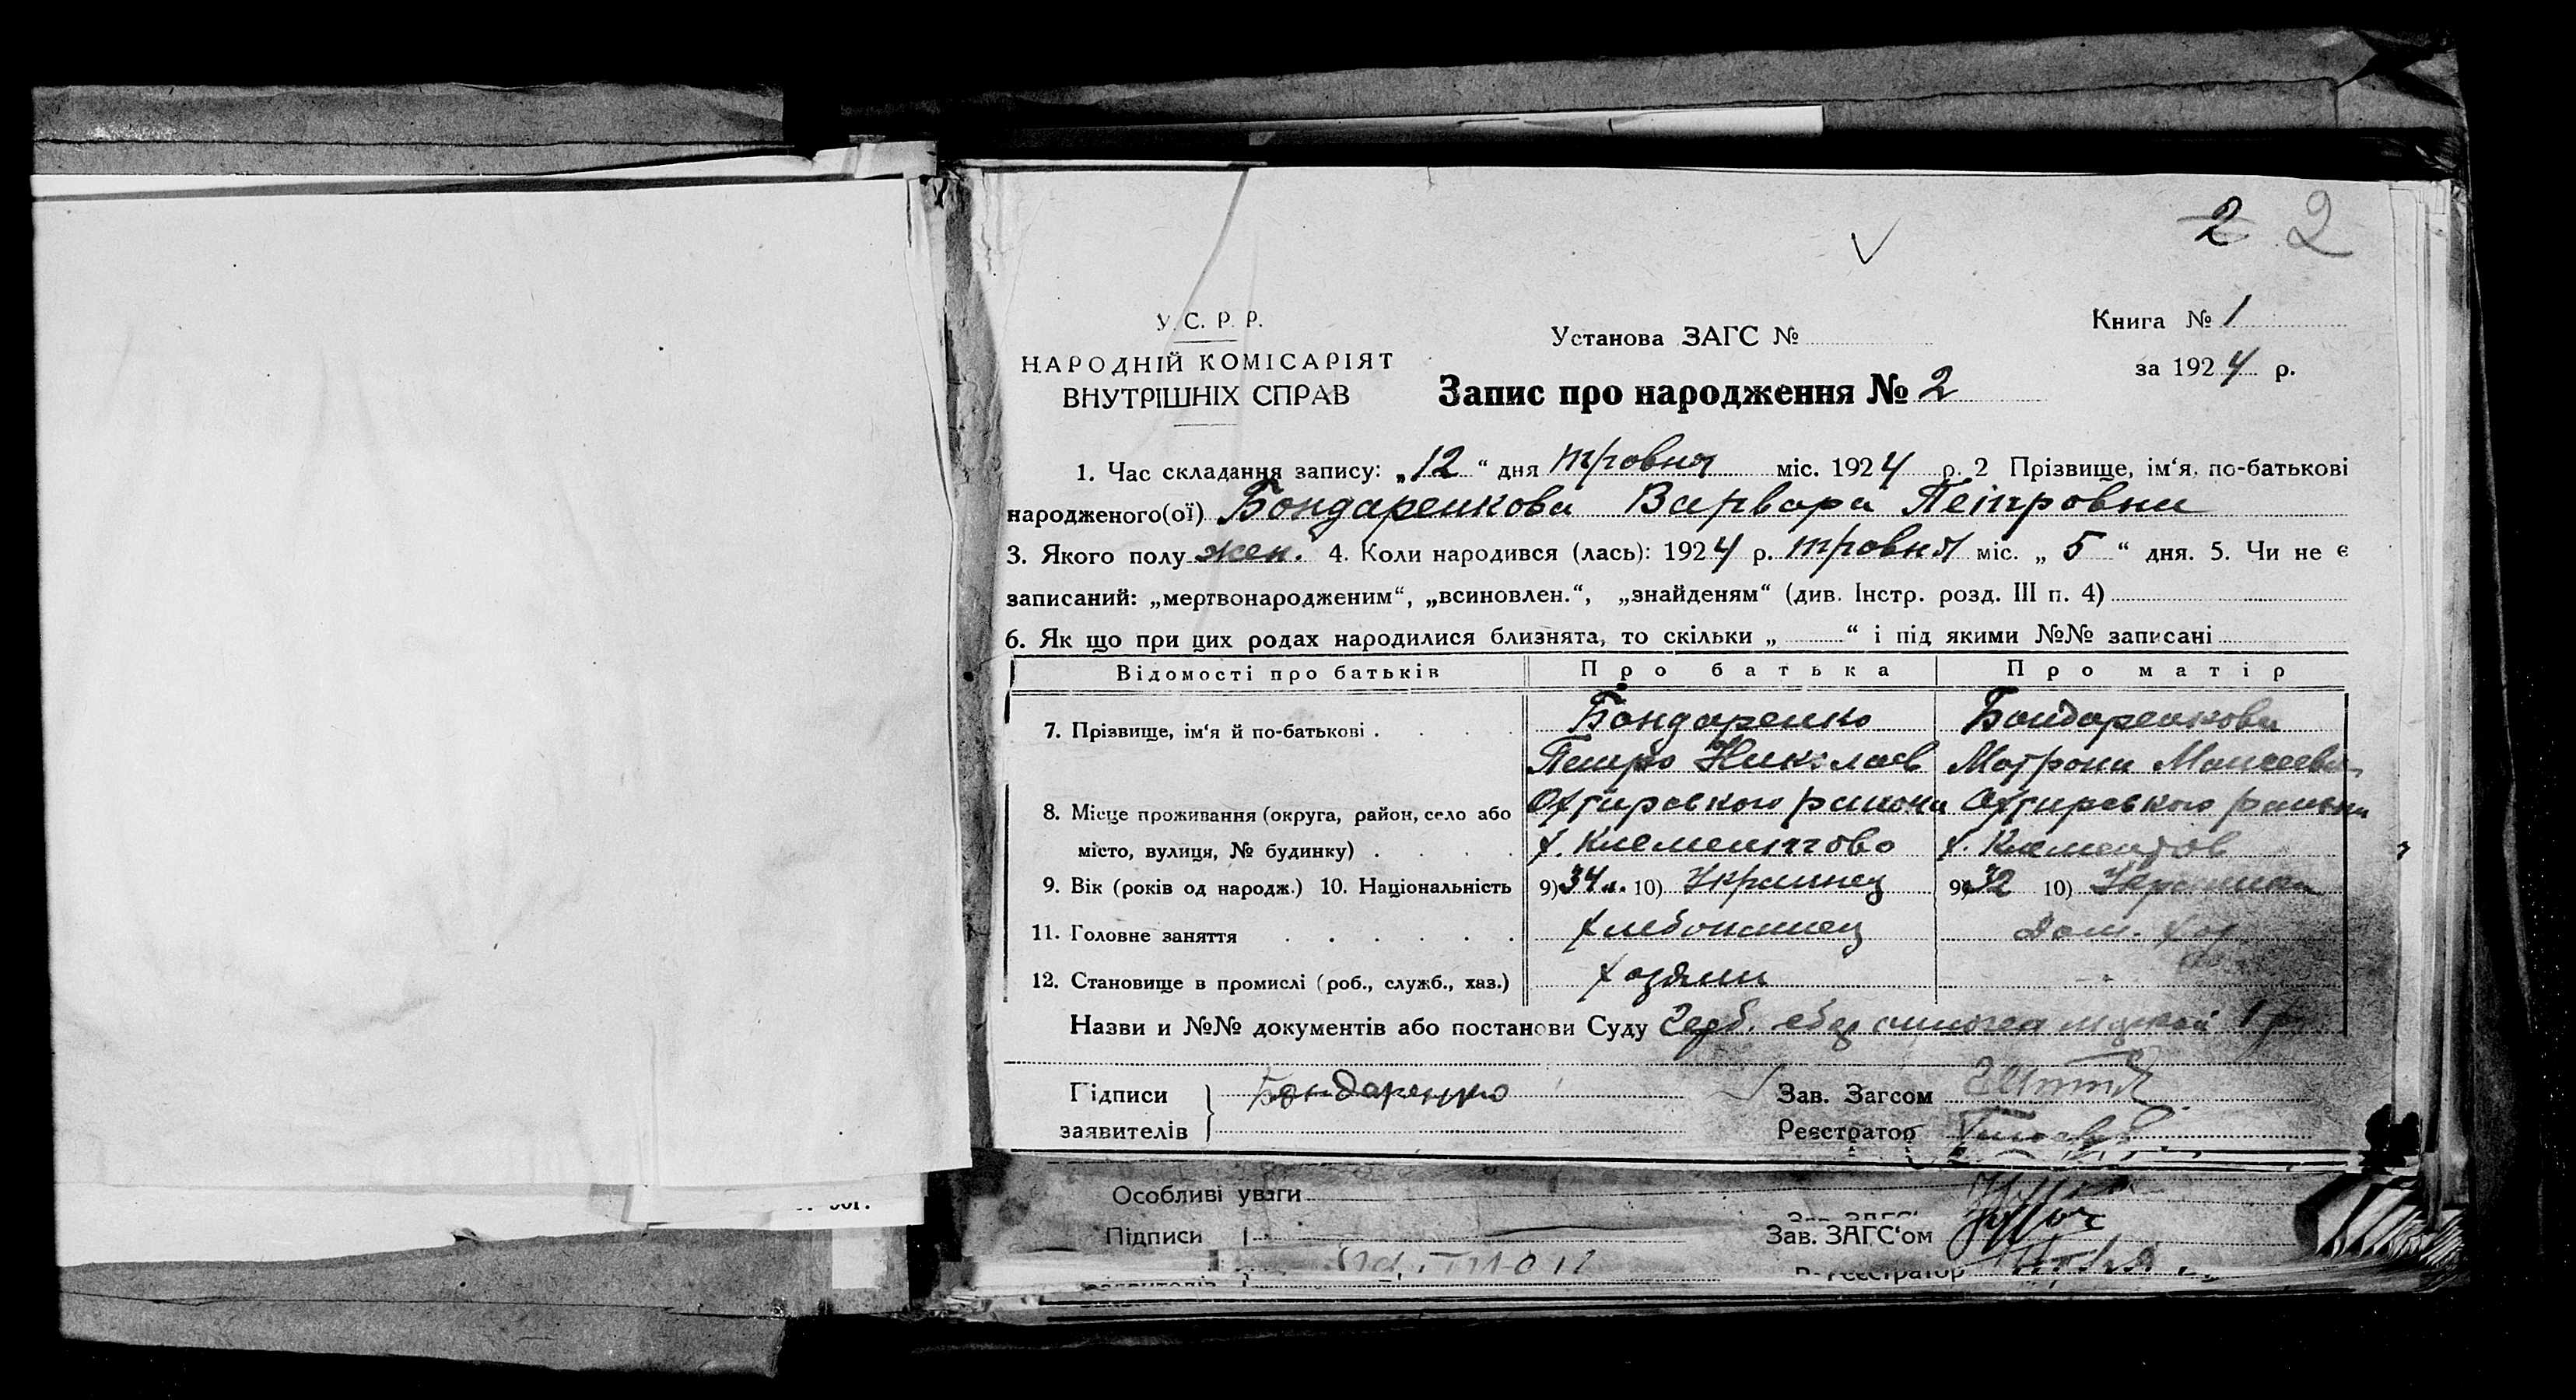 2 2
У. С. Р. Р.
Книга № 1
Установа ЗАГС №
НАРОДНІЙ КОМІСАРІЯТ
за 1924 р.
ВНУТРІШНІХ СПРАВ
Запис про народження № 2
1. Час складання запису: „12“ дня тровня міс. 1924 р. 2 Прізвище, ім‘я, по-батькові
народженого(ої) Бондаренкова Варвара Петровна
3. Якого полу жен. 4. Коли народився (лась): 1924 р. тровня міс. „5“ дня. 5. Чи не є
записаний: „мертвонародженим“, „всиновлен.“, „знайденям“ (див. Інстр. розд. III п. 4)
6. Як що при цих родах народилися близнята, то скільки „ “ і під якими №№ записані
Відомості про батьків Про батька Про матір
7. Прізвище, ім‘я й по-батькові . Бондаренко Бондаренкова
Петро Николаев Матрона Моисеевна
8. Місце проживання (округа, район, село або Охтирського района Охтирського района
місто, вулиця, № будинку) . х. Клементово х. Клементов
9. Вік (років од народж.) 10. Національність 9) 34 л. 10) Украинец 9) 32 10) Украинка
11. Головне заняття Хлебопашец Дом. хоз
12. Становище в промислі (роб., служб., хаз.) Хозяин
Назви и №№ документів або постанови Суду Герб.
Підписи Бондаренко Зав. Загсом
заявителів Реєстратор
Особливі уваги
Підписи Зав. ЗАГС‘ом
Реєстратор